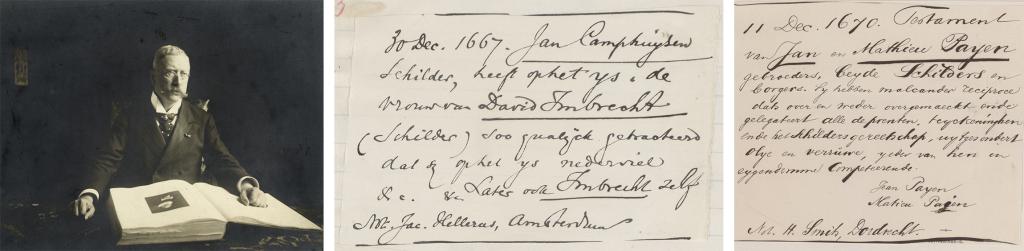 30 Dec. 1667. Jan Camphuijsen
Schilder, heeft ophet ys de
vrouw van David Imbrecht
(Schilder) soo qualijck getracteerd
dat sy ophet ys nederviel
&c. &c. Later ook Imbrecht zelf
Not. Jac. Hellerus, Amsterdam
11 Dec. 1670. Testament
van Jan en Mathieu Payen
gebroeders, beyde Schilders en
borgers. Sy hebben malcander reciproce
dats over en weder overgemaeckt ende
gelegateert alle de prenten, teyckeninghen
ende het schildersgereetschap, uytgesondert
olye en verruwe, yeder van hen in
eygendomme competeerende.
Jean Payen
Matieu Payen
Not. H. Smits, Dordrecht.